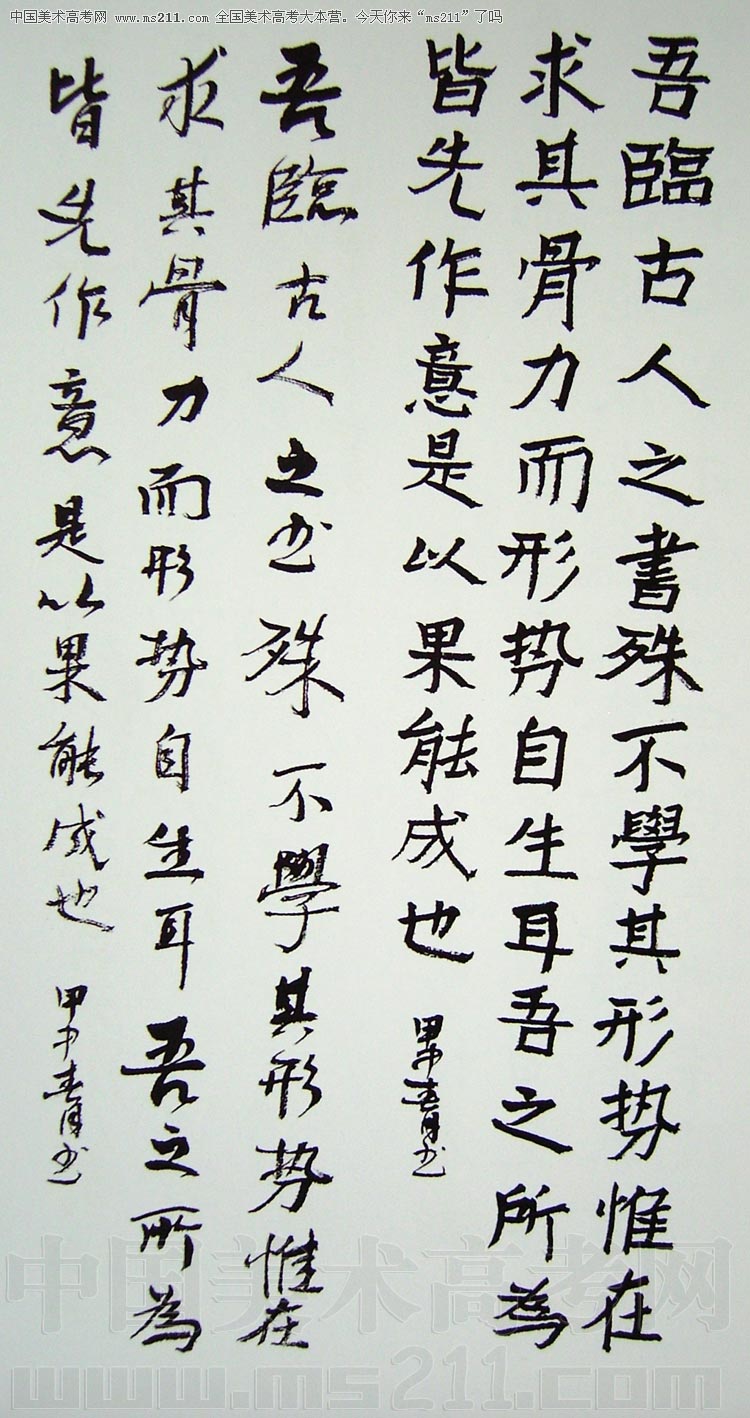 中国美术高考网 www.ms211.com 全国美术高考大本营。今天你来“ms211”了吗
吾臨古人之書殊不學其形势惟在
求其骨力而形势自生耳吾之所為
皆先作意是以果能成也
甲申春月书
吾臨古人之书殊不學其形势惟在
求其骨力而形势自生耳吾之所為
皆先作意是以果能成也
甲申春月书
中国美术高考网
www.ms211.com